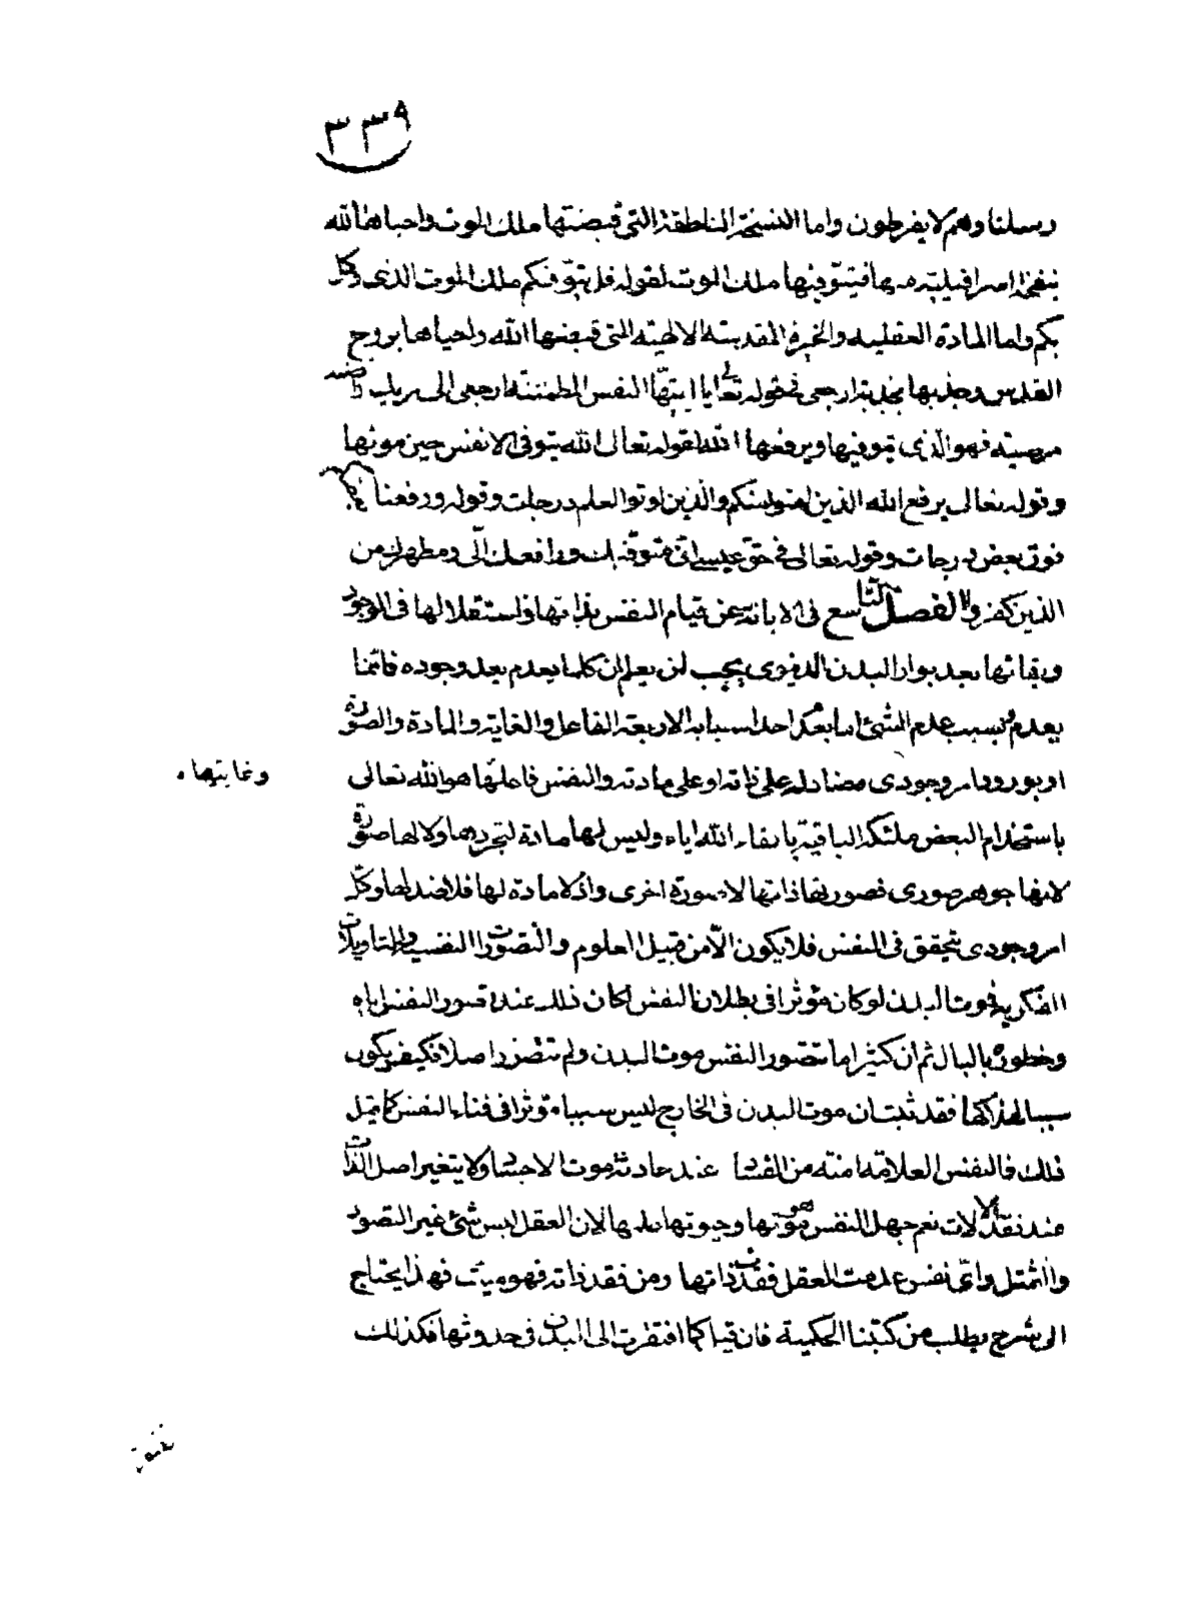 ٣٣٩
رسلنا وهم لا يفرطون واما النسخة الناطقة التي قبضتها ملك الموت واحياها الله
بنفخة اسرافيلية فيتوفيها ملك الموت لقوله قل يتوفيكم ملك الموت الذى وكل
بكم واما المادة العقليه والخمرة القدسية الالهية التى قبضها الله واحياها بروح
القدس وجذبها بجذبة ارجعى فى قوله تعالى يا ايتها النفس المطمئنة ارجعى الى ربك راضية
مرضية فهو الذى يتوفيها ويرفعها الله لقوله تعالى الله يتوفى الانفس حين موتها
وقوله تعالى يرفع الله الذين امنوا منكم والذين اوتوا العلم درجات وقوله ورفعنا بعضهم
فوق بعض درجات وقوله تعالى فى حق عيسى انى متوفيك ورافعك الى ومطهرك من
الذين كفروا الفصل التاسع فى الابانة عن قيام النفس بذاتها واستقلالها فى الوجود
وبقائها بعد بوار البدن الدنيوى يجب ان يعلم ان كلما يعدم بعد وجوده فانما
يعدم بسبب عدم الشئ اما بعدم احد اسبابه الاربعة الفاعل والغاية والمادة والصورة
او بورود امر وجودى مضاد له على ذاته او على مادته والنفس فاعلها هو الله تعالى
وغايتها
باستخدام البعض ملئكة الباقية بابقاء الله اياه وليس لها مادة لتجردها ولا لها صورة
لانها جوهر صورى فصورتها ذاتها لا صورة اخرى واذ لا مادة لها فلا ضد لها وكل
امر وجودى يتحقق فى النفس فلا يكون الا من قبيل العلوم والتصورات النفسية والتاويلات
الفكرية فموت البدن لو كان مؤثرا فى بطلان النفس لكان ذلك عند تصور النفس اياه
وخطوره بالبال ثم ان كثيرا ما تتصور النفس موت البدن ولم تتضرر اصلا فكيف يكون
سببا لهلاكها فقد ثبت ان موت البدن فى الخارج ليس سببا مؤثرا فى فناء النفس كما تمثل
ذلك فالنفس العلامة امنة من الفساد عند حادثة موت الاجساد ولا يتغير اصل الذات
عند فقد الالات نعم جهل النفس موتها وحيوتها علمها لان العقل ليس شئ غير التصور
والتمثل واى نفس عدمت العقل فقدت ذاتها ومن فقد ذاته فهو ميت فهذا يحتاج
الى شرح يطلب من كتبنا الحكمية فان قيل كما افتقرت الى البدن فى حدوثها فكذلك